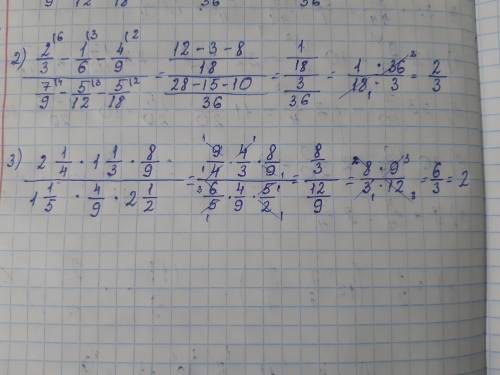 9 12 18 36 36
2) (2/3 - 1/6 - 4/9) / (7/9 - 5/12 - 5/18) = ((12 - 3 - 8)/18) / ((28 - 15 - 10)/36) = (1/18) / (3/36) = (1 · 36)/(18 · 3) = 2/3
3) (2 1/4 · 1 1/3 · 8/9) / (1 1/5 · 4/9 · 2 1/2) = (9/4 · 4/3 · 8/9) / (6/5 · 4/9 · 5/2) = (8/3) / (12/9) = (8 · 9)/(3 · 12) = 6/3 = 2